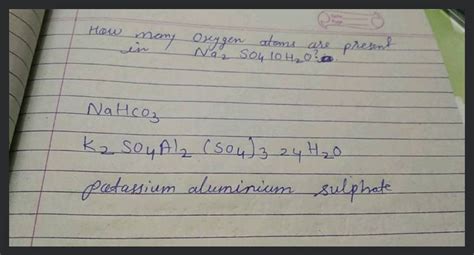 How many Oxygen atoms are present
in Na2 SO4 10H2O?
NaHCO3
K2 SO4 Al2 (SO4)3 24H2O
potassium aluminium sulphate